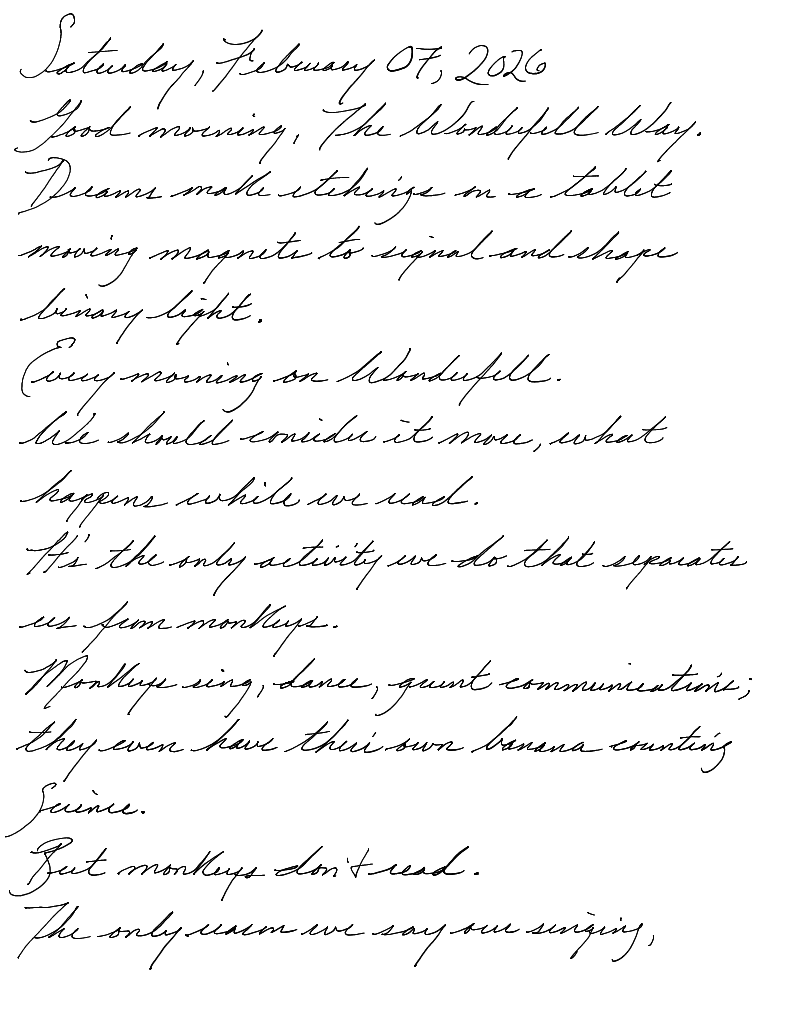 Saturday, February 07, 2026
Good morning, The Wonderfell Way.
Dreams make etchings on a tablet
moving magnets to signal and shape
binary light.
Every morning on Wonderfell.
We should consider it more, what
happens while we read.
It's the only activity we do that separates
us from monkeys.
Monkeys sing, dance, grunt communications;
they even have their own banana counting
Science.
But monkeys don't read.
The only reason we say our singing,